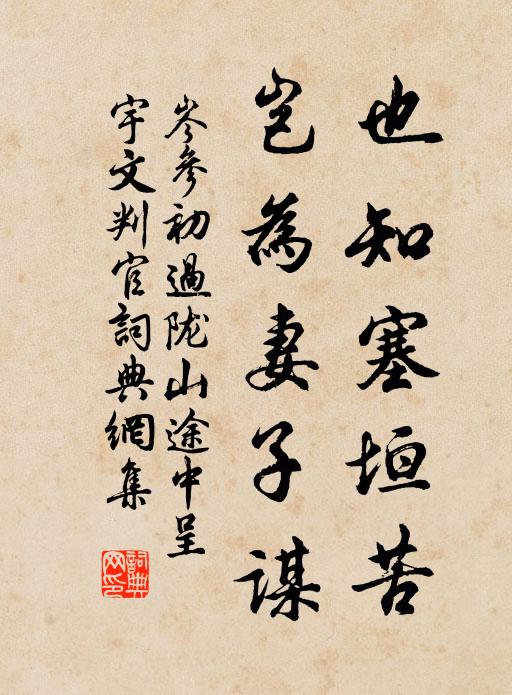 也知塞垣苦
岂為妻子謀
岑參初過陇山途中呈
宇文判官詞典網集
詞典网印